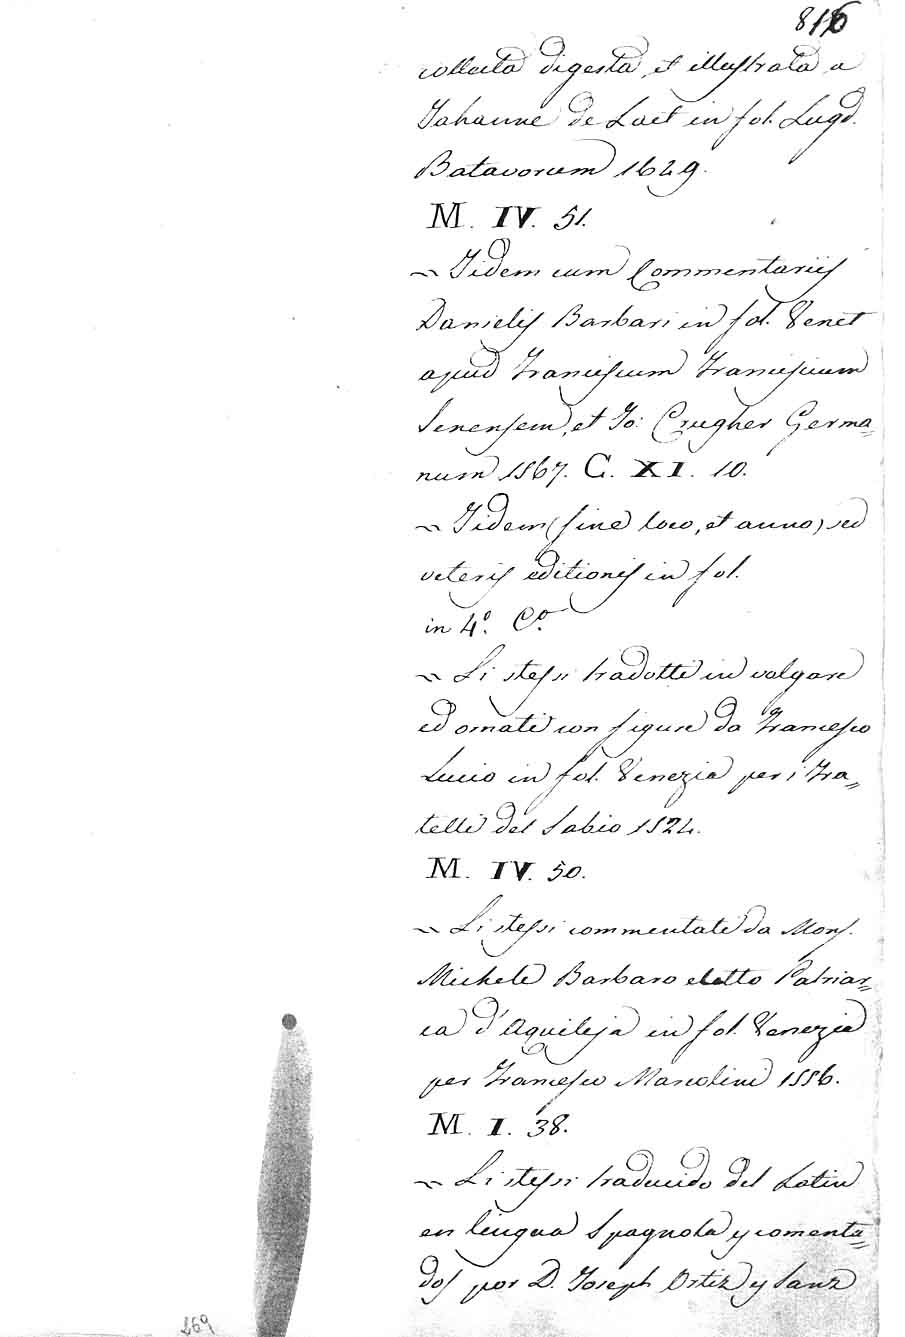 816
collecta digesta, et illustrata a
Johanne de Laet in fol. Lugd.
Batavorum 1649.
M. IV. 51.
~ Iidem cum Commentariis
Danielis Barbari in fol. Venet
apud Franciscum Franciscium
Senensem, et Jo: Crugher Germa=
num 1567. C. XI. 10.
~ Iidem (sine loco, et anno) sed
veteris editionis in fol.
in 4º. Cº.
~ Li stessi tradotti in volgare
ed ornati con figure da Francesco
Lucio in fol. Venezia per i Fra=
telli del Sabio 1524.
M. IV. 50.
~ Li stessi commentati da Mons.
Michele Barbaro eletto Patriar=
ca d'Aquileja in fol. Venezia
per Francesco Marcolini 1556.
M. I. 38.
~ Li stessi traducido del Latin
en lingua Spagnola y comenta=
dos por D. Joseph Ortiz y Sanz
269